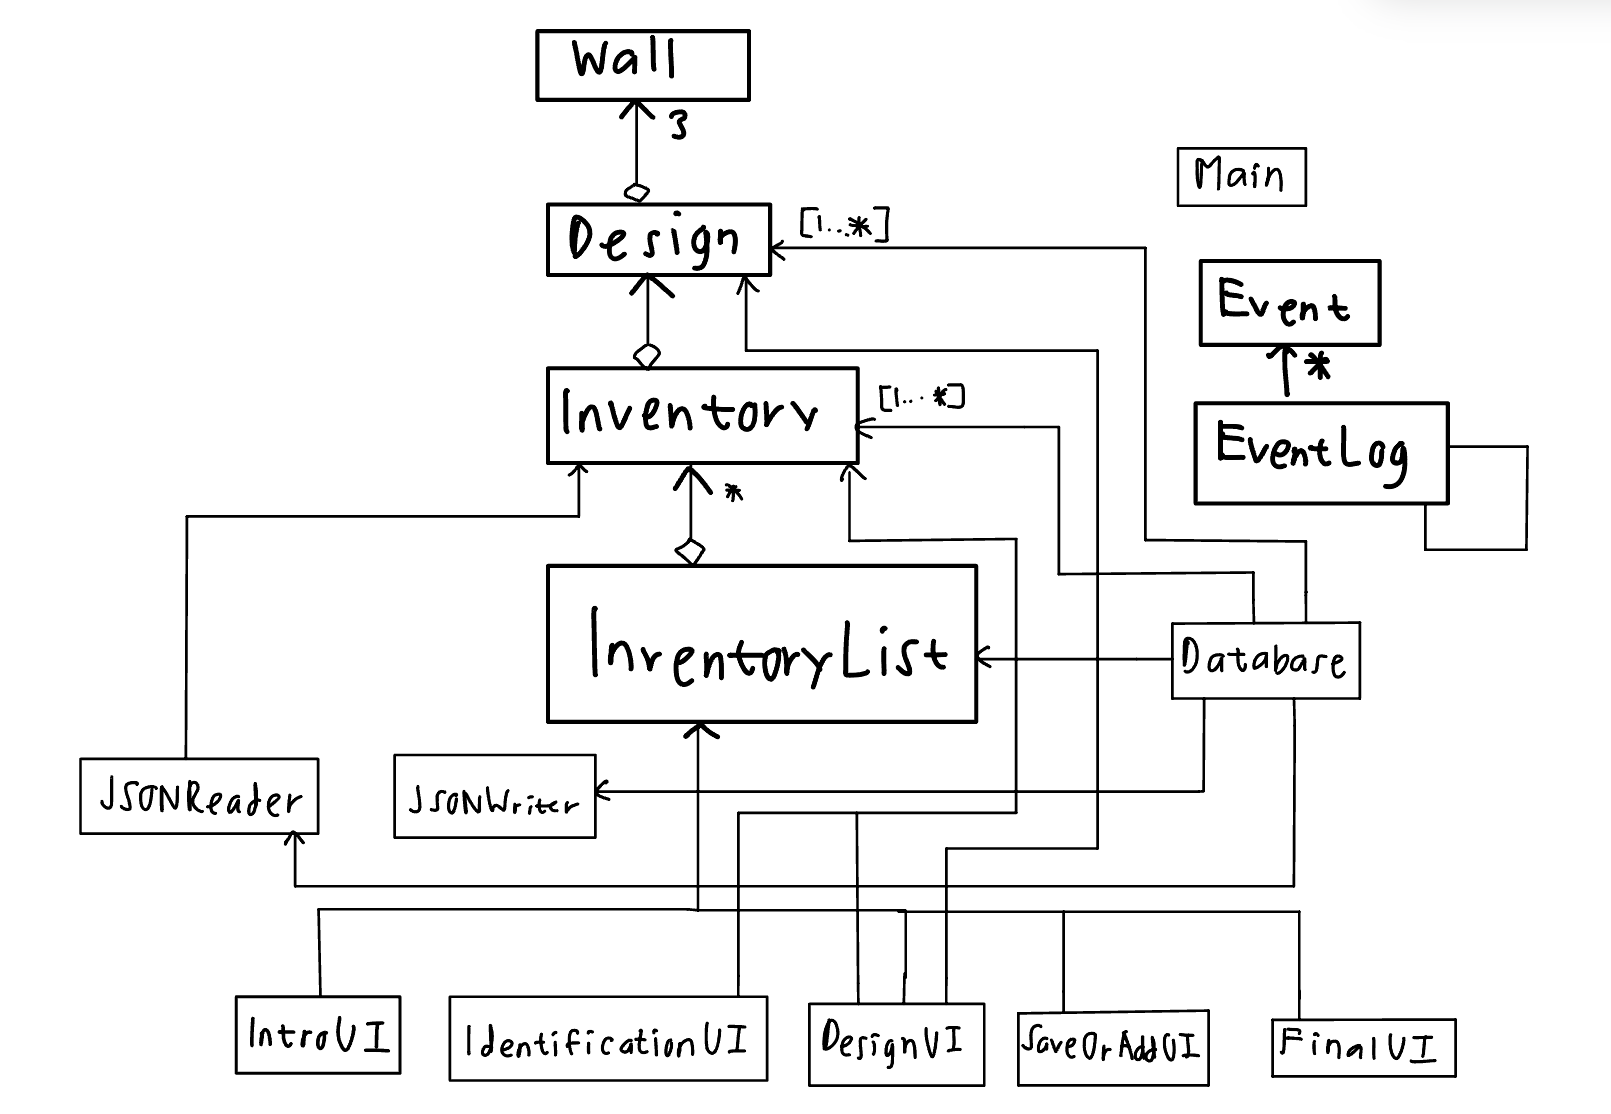 Wall
3
Main
Design
[1..*]
Event
*
Inventory
[1...*]
EventLog
*
InventoryList
Database
JSONReader
JSONWriter
IntroUI
IdentificationUI
DesignUI
SaveOrAddUI
FinalUI